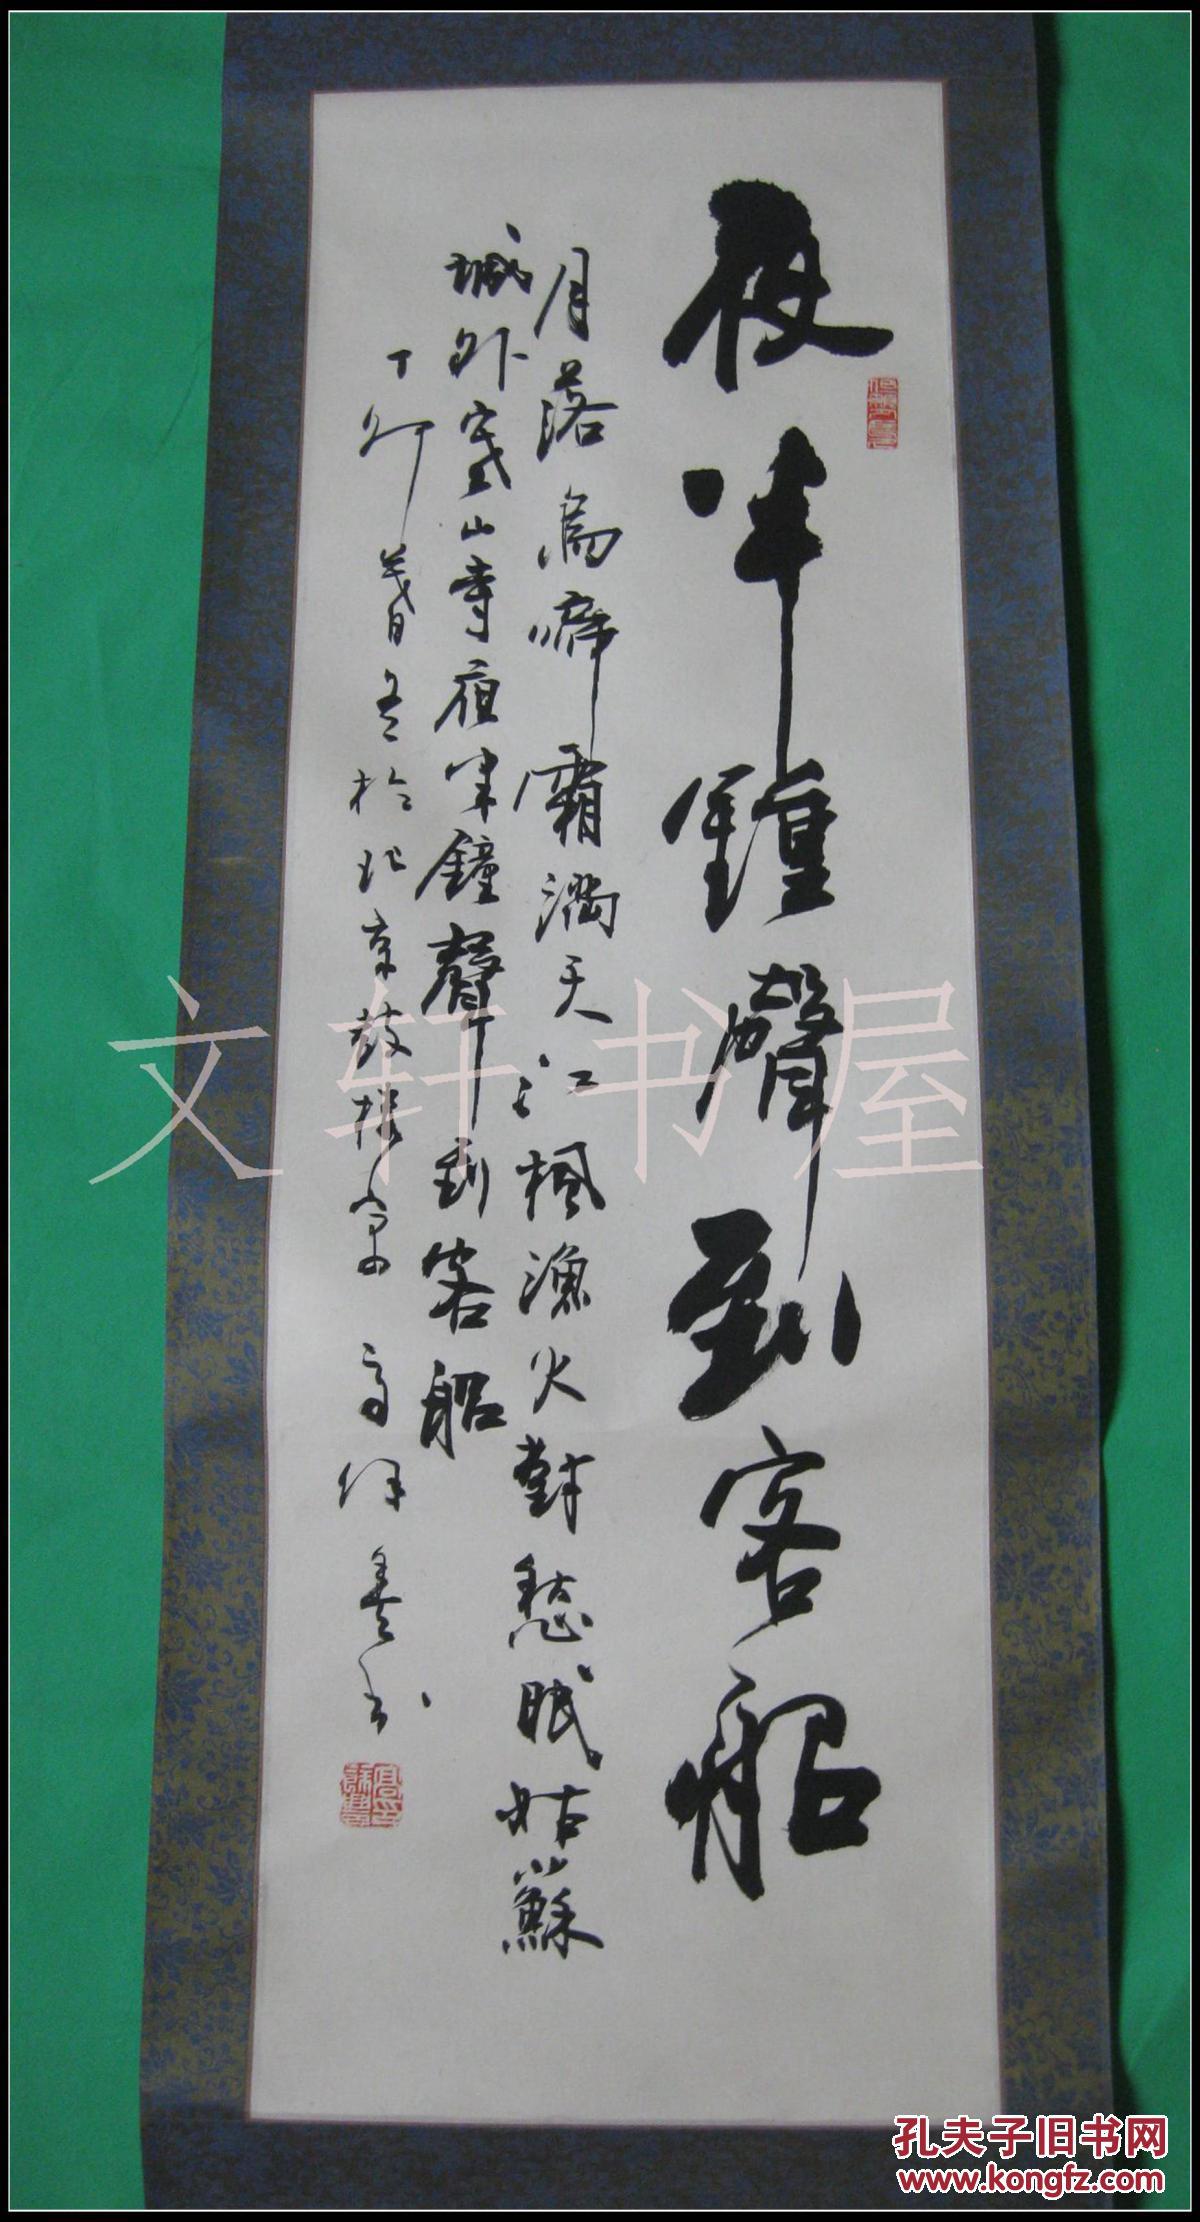 夜半鐘聲到客船
月落烏啼霜滿天江楓漁火對愁眠姑蘇
城外寒山寺夜半鐘聲到客船
丁卯暮春於北京鼓樓寓
文轩书屋
孔夫子旧书网
www.kongfz.com